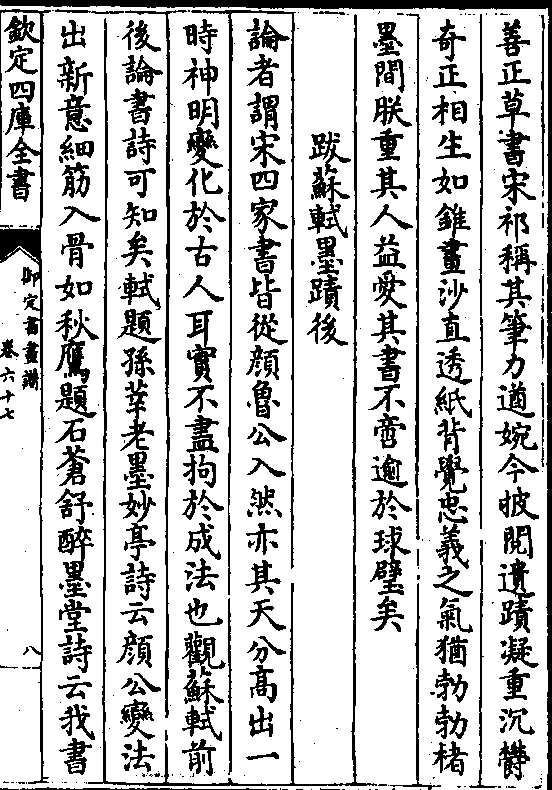 善正草書宋祁稱其筆力遒婉今披閱遺蹟凝重沉欎
奇正相生如錐畫沙直透紙背覺忠義之氣猶勃勃楮
墨間朕重其人益愛其書不啻逾於球璧矣
跋蘇軾墨蹟後
論者謂宋四家書皆從顔魯公入然亦其天分高出一
時神明變化於古人耳實不盡拘於成法也觀蘇軾前
後論書詩可知矣軾題孫莘老墨妙亭詩云顔公變法
出新意細筋入骨如秋鷹題石蒼舒醉墨堂詩云我書
欽定四庫全書
御定書畫譜
卷六十七
八